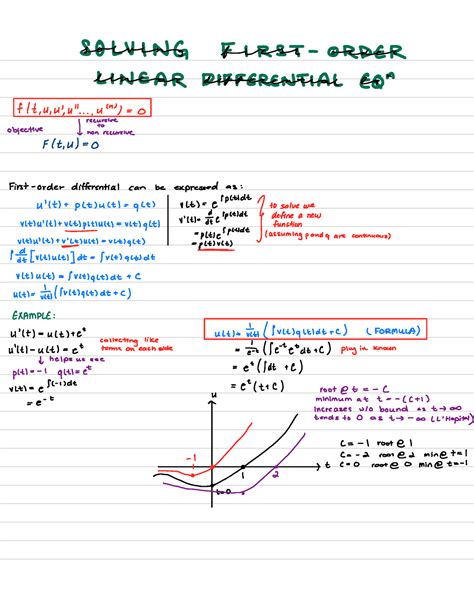 SOLVING FIRST-ORDER
LINEAR DIFFERENTIAL EQⁿ
f(t,u,u',u'',...,u⁽ⁿ⁾) = 0
objective
recursive
to
non recursive
F(t,u) = 0
First-order differential can be expressed as:
u'(t) + p(t)u(t) = q(t)
v(t)u'(t) + v(t)p(t)u(t) = v(t)q(t)
v(t)u'(t) + v'(t)u(t) = v(t)q(t)
∫ d/dt [v(t)u(t)] dt = ∫v(t)q(t)dt
v(t)u(t) = ∫v(t)q(t)dt + C
u(t) = 1/v(t) (∫v(t)q(t)dt + C)
v(t) = e^∫p(t)dt
v'(t) = d/dt e^∫p(t)dt
= p(t)e^∫p(t)dt
= p(t)v(t)
to solve we
define a new
function
(assuming p and q are continuous)
EXAMPLE:
u'(t) = u(t) + eᵗ
u'(t) - u(t) = eᵗ
collecting like
terms on each side
helps us see
p(t) = -1 q(t) = eᵗ
v(t) = e^∫(-1)dt
= e⁻ᵗ
u(t) = 1/v(t) (∫v(t)q(t)dt + C) (FORMULA)
= 1/e⁻ᵗ (∫e⁻ᵗeᵗdt + C) plug in known
= eᵗ(∫dt + C)
= eᵗ(t + C)
root @ t = -C
minimum at t = -(C+1)
increases w/o bound as t → ∞
tends to 0 as t → -∞ (L'Hopital)
C = -1 root @ 1
C = -2 root @ 2 min @ t = 1
C = 0 root @ 0 min @ t = -1
u
t
-1
1
2
t=0